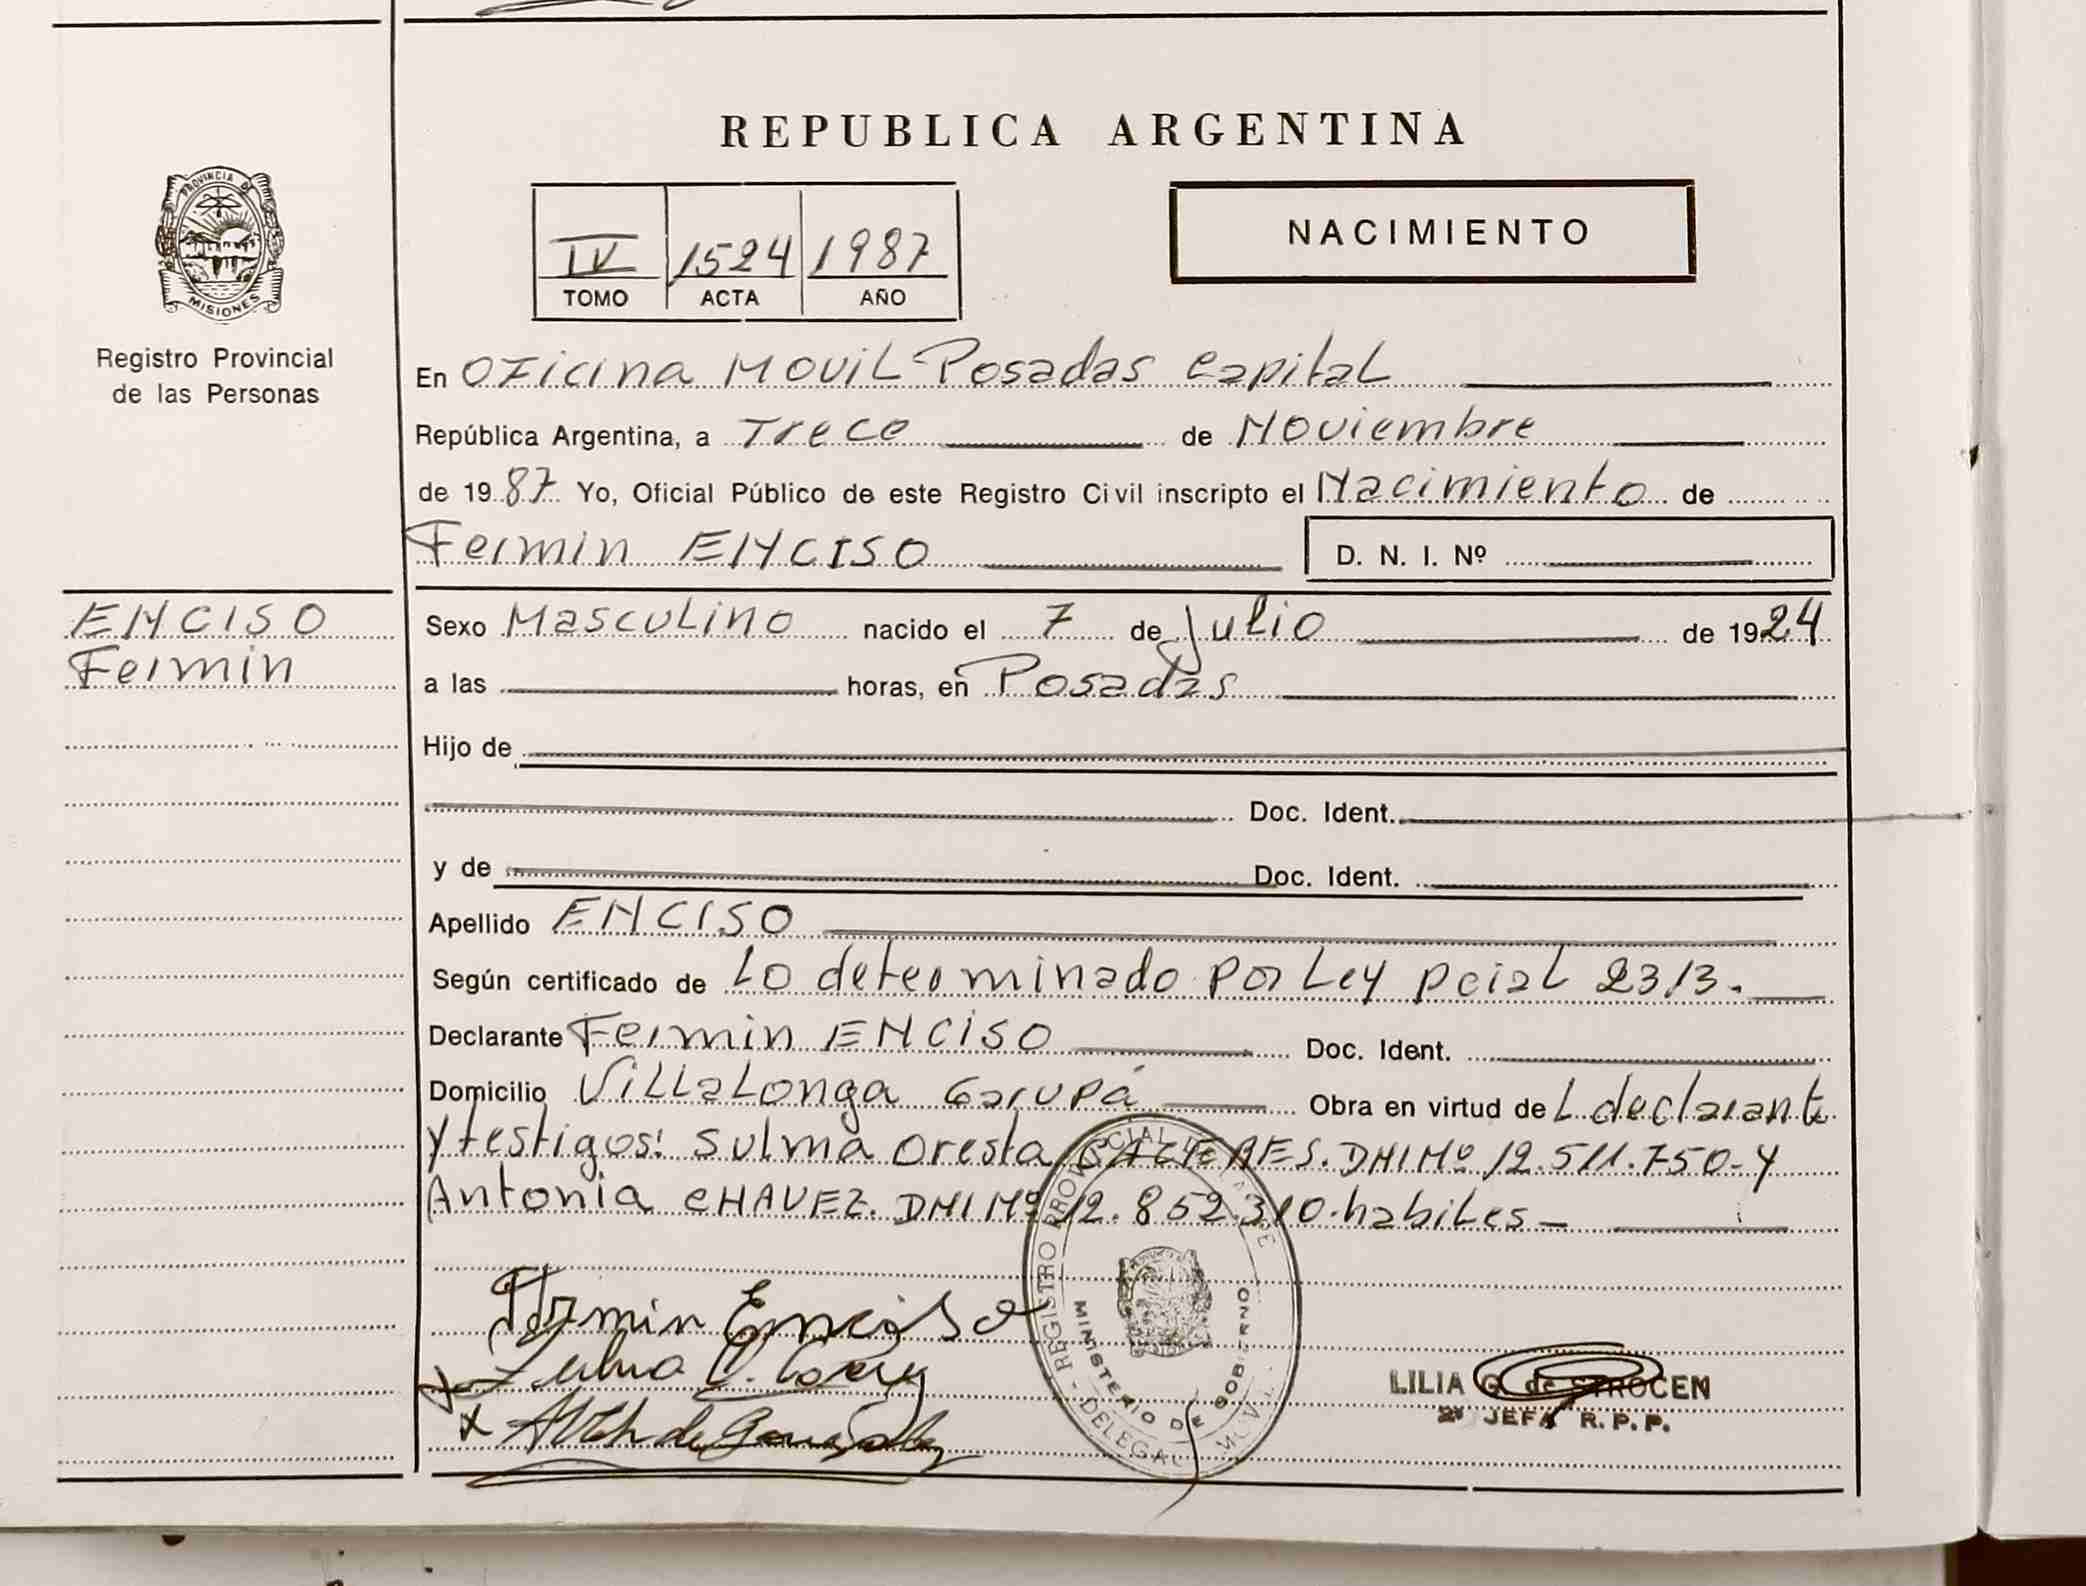 REPUBLICA ARGENTINA
PROVINCIA DE
MISIONES
Registro Provincial
de las Personas
IV 1524 1987
TOMO ACTA AÑO
NACIMIENTO
En Oficina Movil-Posadas Capital
República Argentina, a Trece de Noviembre
de 1987 Yo, Oficial Público de este Registro Civil inscripto el Nacimiento de
Fermin ENCISO D. N. I. Nº
ENCISO
Fermin
Sexo Masculino nacido el 7 de Julio de 1924
a las horas, en Posadas
Hijo de
Doc. Ident.
y de Doc. Ident.
Apellido ENCISO
Según certificado de Lo determinado por Ley pcial 2313.
Declarante Fermin ENCISO Doc. Ident.
Domicilio Villalonga Garupá Obra en virtud de L declarante
y testigos: Sulma Oresta DNI Nº 12.511.750-y
Antonia CHAVEZ. DNI Nº 12.852.310. habiles-
Fermin Enciso
REGISTRO PROVINCIAL
MINISTERIO DE GOBIERNO
LILIA G. de STROCEN
2ª JEFA R.P.P.